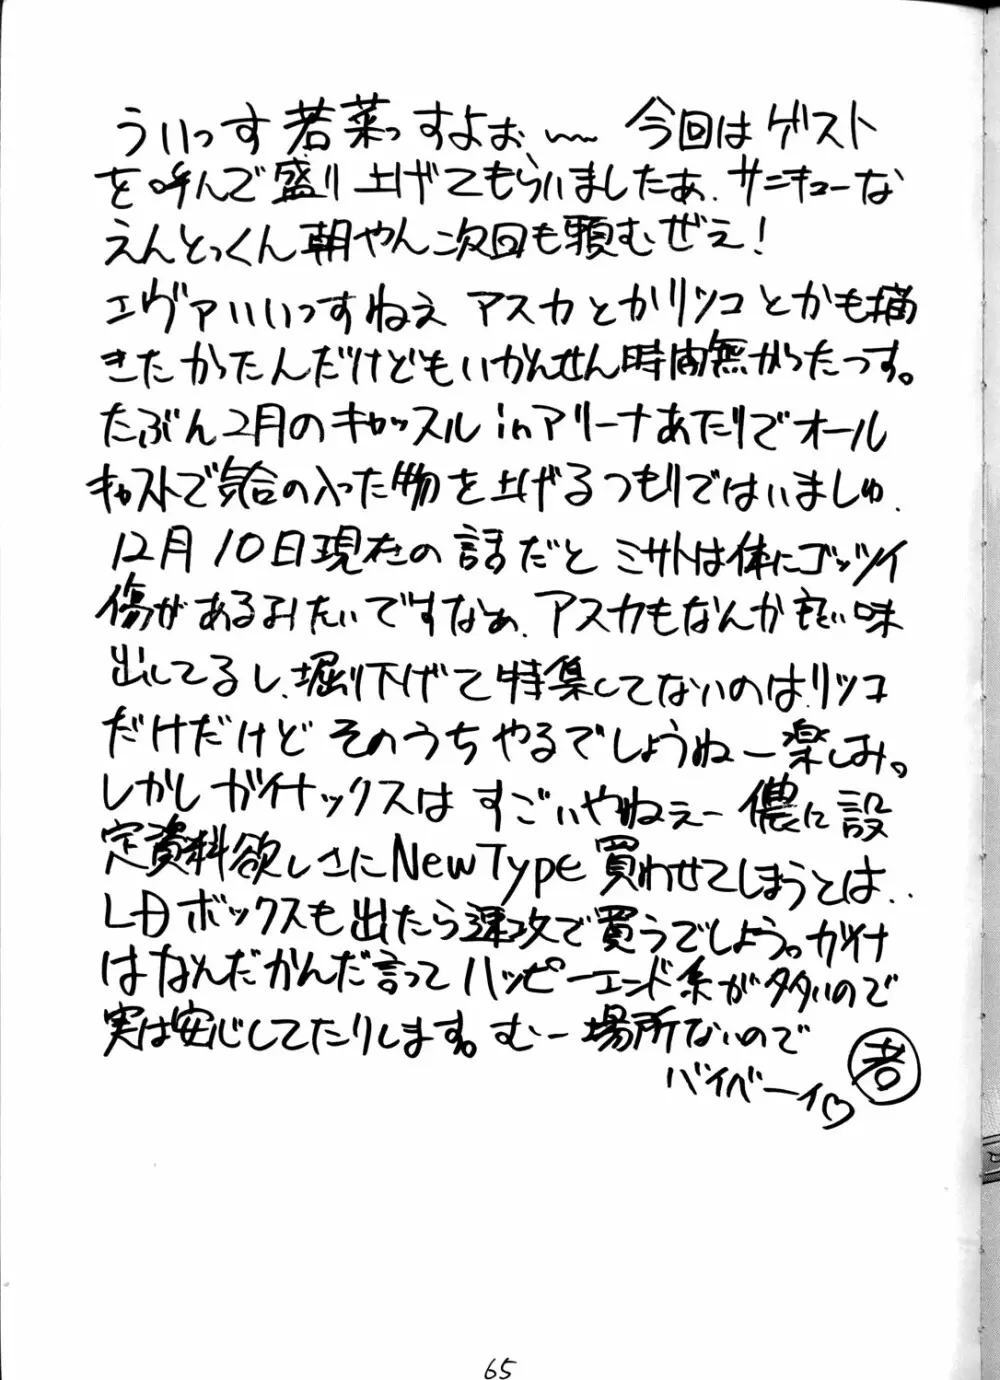 ういっす若菜っすよぉ〜 今回はゲスト
を呼んで盛り上げてもらいましたあ、サンキューな
えんとっくん朝やん次回も頼むぜえ!
エヴァいいっすねえ アスカとかリツコとかも描
きたかったんだけどもいかんせん時間無かったっす。
たぶん2月のキャッスルinアリーナあたりでオール
キャストで気合の入った物を上げるつもりではいましゅ.
12月10日現在の話だと ミサトは体にゴッツイ
傷があるみたいですなぁ、アスカもなんか良い味
出してるし、堀り下げて特集してないのはリツコ
だけだけど そのうちやるでしょうねー楽しみ。
しかしガイナックスは すごいやねぇー 儂に設
定資料欲しさにNewType買わせてしまうとは..
LDボックスも出たら速攻で買うでしょう。ガイナ
はなんだかんだ言ってハッピーエンド系が多いので
実は安心してたりします。むー場所ないので
バイベーイ♡ 若
65